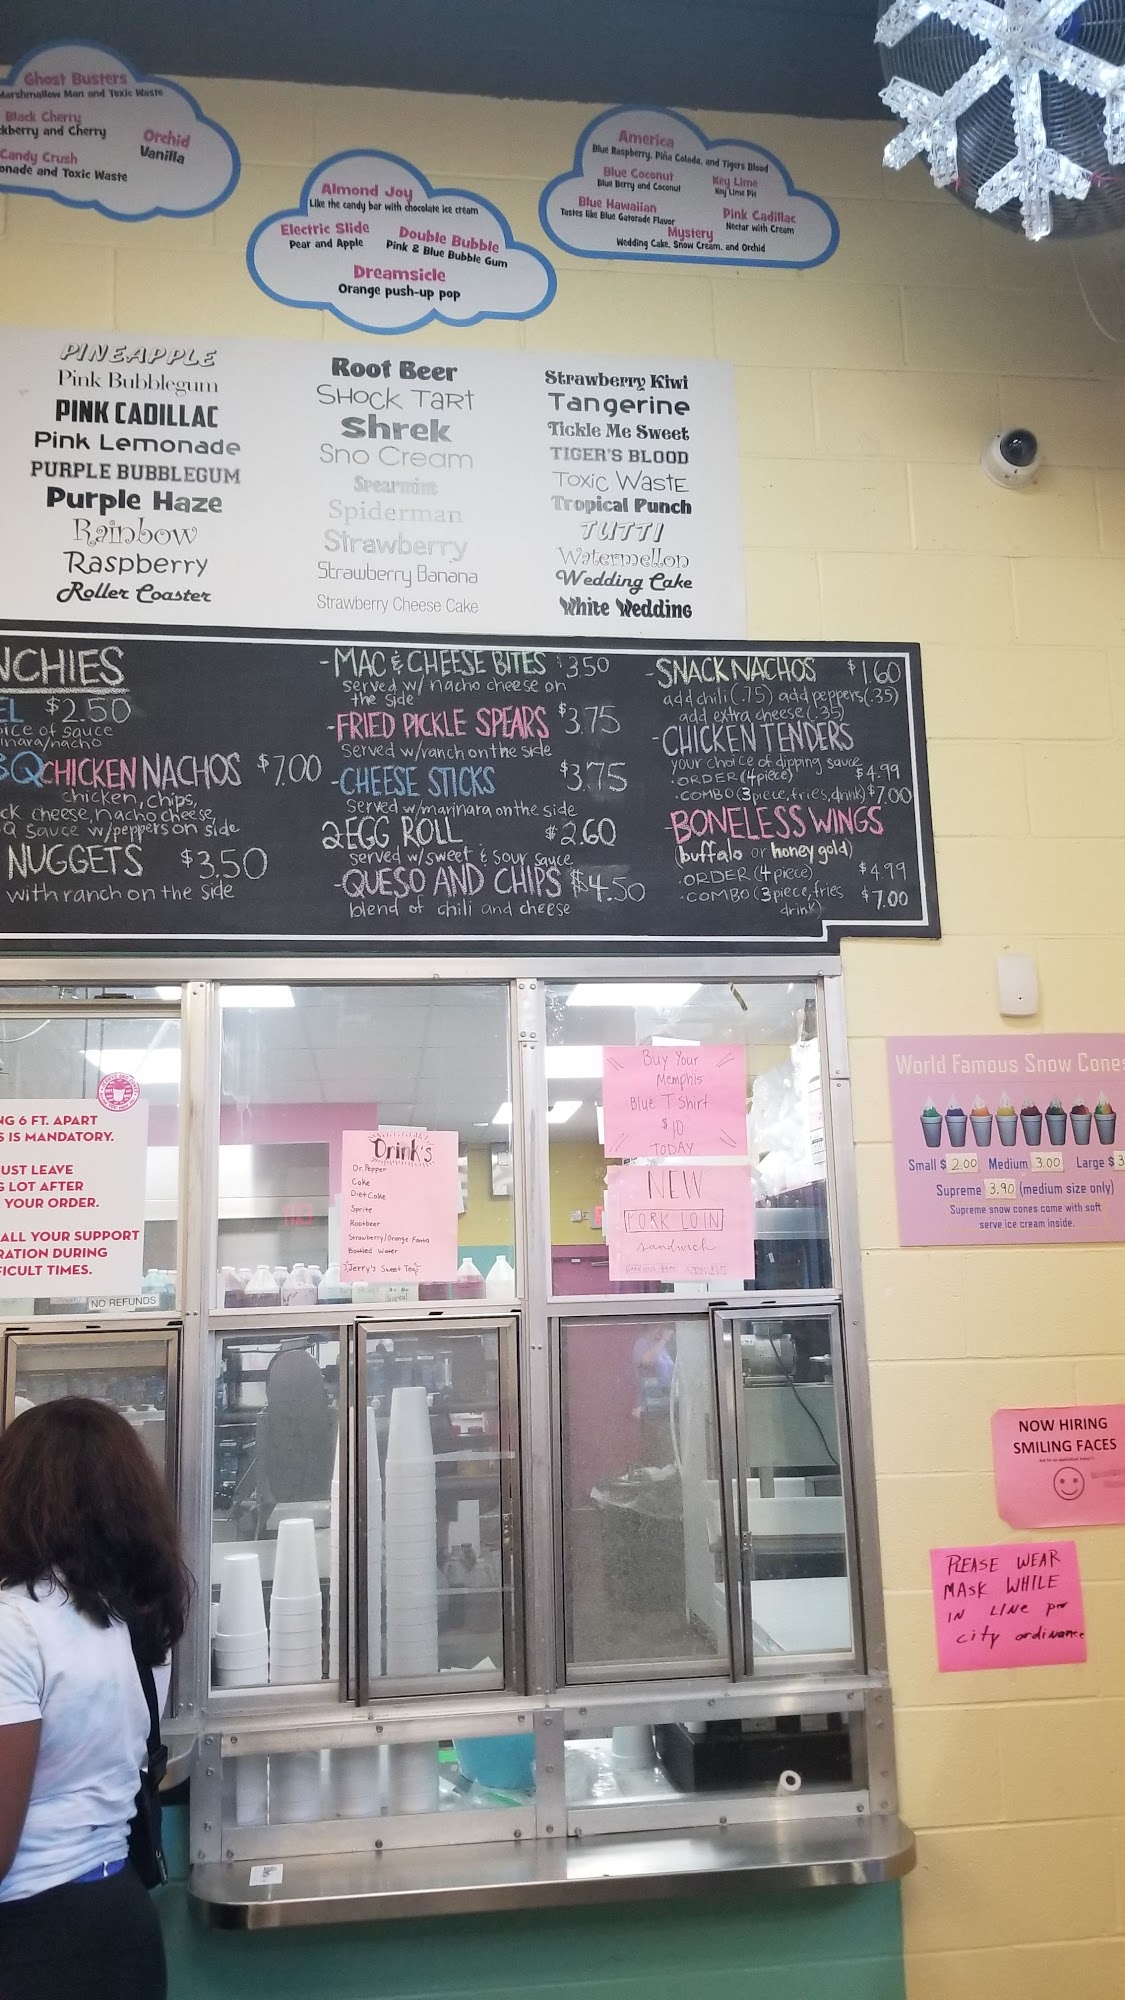 Ghost Busters
Marshmallow Man and Toxic Waste
Black Cherry
kberry and Cherry
Orchid
Vanilla
Candy Crush
onade and Toxic Waste
Almond Joy
Like the candy bar with chocolate ice cream
Electric Slide
Pear and Apple
Double Bubble
Pink & Blue Bubble Gum
Dreamsicle
Orange push-up pop
America
Blue Raspberry, Piña Colada, and Tigers Blood
Blue Coconut
Blue Berry and Coconut
Key Lime
Key Lime Pie
Blue Hawaiian
Tastes like Blue Gatorade Flavor
Pink Cadillac
Nectar with Cream
Mystery
Wedding Cake, Snow Cream, and Orchid
PINEAPPLE
Pink Bubblegum
PINK CADILLAC
Pink Lemonade
PURPLE BUBBLEGUM
Purple Haze
Rainbow
Raspberry
Roller Coaster
Root Beer
SHOCK TART
Shrek
Sno Cream
Spearmint
Spiderman
Strawberry
Strawberry Banana
Strawberry Cheese Cake
Strawberry Kiwi
Tangerine
Tickle Me Sweet
TIGER'S BLOOD
TOXIC WASTE
Tropical Punch
TUTTI
Watermellon
Wedding Cake
White Wedding
NCHIES
EL $2.50
oice of sauce
inara/nacho
BQ CHICKEN NACHOS $7.00
chicken, chips,
ck cheese, nacho cheese,
Q sauce w/peppers on side
NUGGETS $3.50
with ranch on the side
-MAC & CHEESE BITES $3.50
served w/ nacho cheese on
the side
-FRIED PICKLE SPEARS $3.75
Served w/ranch on the side
-CHEESE STICKS $3.75
Served w/marinara on the side
2 EGG ROLL $2.60
served w/sweet & sour sauce
-QUESO AND CHIPS $4.50
blend of chili and cheese
-SNACK NACHOS $1.60
add chili (.75) add peppers (.35)
add extra cheese (.35)
-CHICKEN TENDERS
your choice of dipping sauce
·ORDER (4 piece) $4.99
·COMBO (3 piece, fries, drink) $7.00
-BONELESS WINGS
(buffalo or honey gold)
·ORDER (4 piece) $4.99
·COMBO (3 piece, fries
drink) $7.00
NG 6 FT. APART
S IS MANDATORY.
UST LEAVE
G LOT AFTER
YOUR ORDER.
ALL YOUR SUPPORT
RATION DURING
FICULT TIMES.
NO REFUNDS
Drink's
Dr. Pepper
Coke
Diet Coke
Sprite
Rootbeer
Strawberry/Orange Fanta
Bottled Water
Jerry's Sweet Tea
Buy Your
Memphis
Blue T Shirt
$10
TODAY
NEW
PORK LOIN
sandwich
World Famous Snow Cones
Small $ 2.00 Medium 3.00 Large $ 3
Supreme 3.90 (medium size only)
Supreme snow cones come with soft
serve ice cream inside.
NOW HIRING
SMILING FACES
PLEASE WEAR
MASK WHILE
IN LINE per
city ordinance